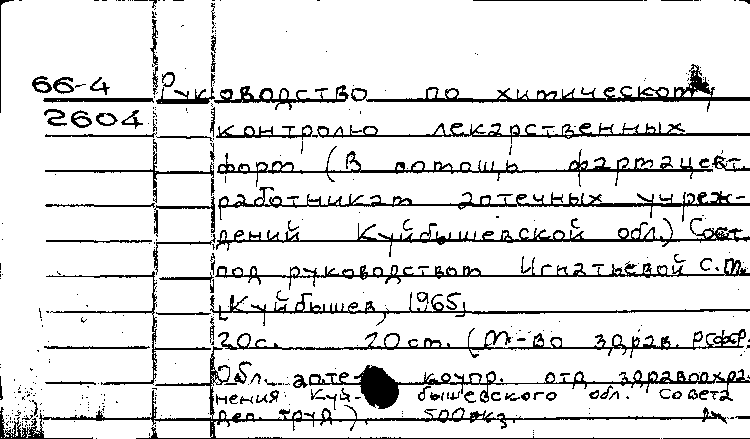 66-4 Руководство по химическому
2604 контролю лекарственных
форм. (В помощь фармацевт.
работникам аптечных учреж-
дений Куйбышевской обл.) Сост.
под руководством Игнатьевой С.М.
[Куйбышев, 1965]
20с. 20см. (М-во здрав. РСФСР.
Обл. аптеч. коупр. отд здравоохра-
нения Куй- бышевского обл. Совета
деп. труд.). 500экз.